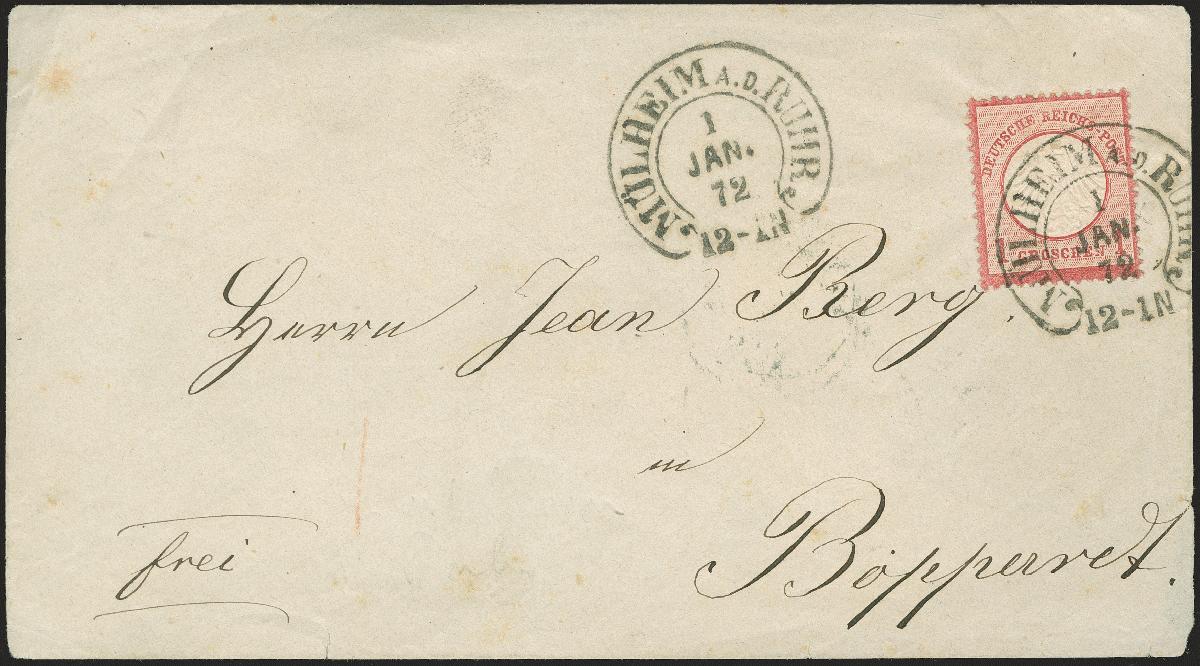 MÜLHEIM A.D. RUHR
1
JAN.
72
12-1N
DEUTSCHE REICHS-POST
1 GROSCHEN 1
MÜLHEIM A.D. RUHR
1
JAN.
72
12-1N
Herrn Jean Berg.
in
Boppard.
frei